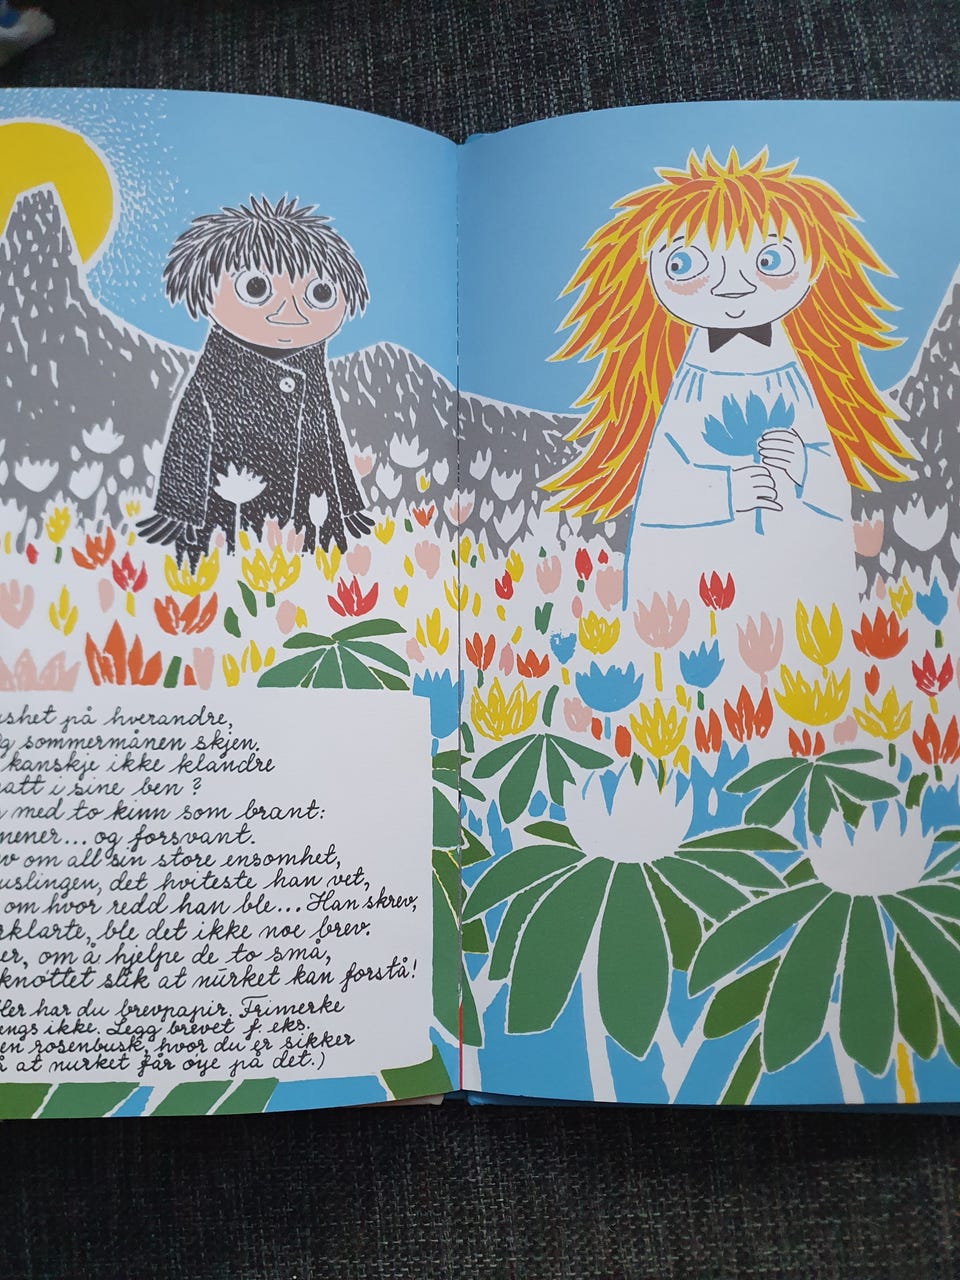 på hverandre,
sommermånen skjen.
kanskje ikke klandre
i sine ben?
med to kinn som brant:
mener... og forsvant.
om all sin store ensomhet,
det hviteste han vet,
om hvor redd han ble... Han skrev,
ble det ikke noe brev.
om å hjelpe de to små,
knøttet slik at nurket kan forstå!
har du brevpapir. Frimerke
ikke. Legg brevet f. eks.
en rosenbusk, hvor du er sikker
at nurket får øye på det.)